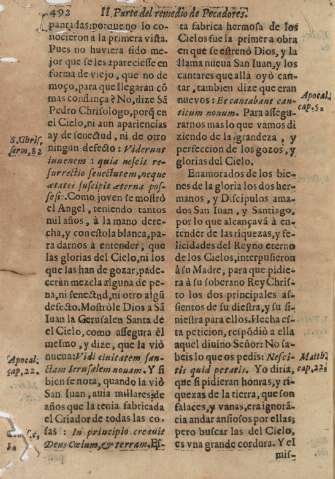 492 II Parte del remedio de Pecadores.
pantadas: porque no lo co-
nocieron a la primera vista.
Pues no huviera sido me-
jor que se les apareciesse en
forma de viejo, que no de
moço, para que llegaran cõ
mas confiança? No, dize Sã
Pedro Chrisologo, porq̃ en
el Cielo, ni aun apariencias
ay de senectud, ni de otro
ningun defecto: Viderunt
iuvenem: quia nescit re-
surrectio senectutem, neque
ætates suscipit æterna pos-
sesi. Como joven se mostrò
el Angel, teniendo tantos
mil años, à la mano dere-
cha, y con estola blanca, pa-
ra darnos à entender, que
las glorias del Cielo, ni los
que las han de gozar, pade-
ceràn mezcla alguna de pe-
na, ni senectud, ni otro algũ
defecto. Mostròle Dios à Sã
Juan la Gerusalen Santa de
el Cielo, como assegura èl
mesmo, y dize, que la viò
nueva: Vidi civitatem san-
ctam Ierusalem novam. Y si
bien se nota, quando la viò
San Juan, avia millares de
años que la tenia fabricada
el Criador de todas las co-
sas: In principio creavit
Deus Cœlum, & terram. Es-
S. Chris.
serm. 82
Apocal.
cap. 22.
ta fabrica hermosa de los
Cielos fue la primera obra
en que se estrenò Dios, y la
llama nueva San Juan, y los
cantares que allà oyò can-
tar, tambien dize que eran
nuevos: Et cantabant can-
ticum novum. Para assegu-
rarnos mas lo que vamos di
ziendo de la grandeza, y
perfeccion de los gozos, y
glorias del Cielo.
Enamorados de los bie-
nes de la gloria los dos her-
manos, y Discipulos ama-
dos San Juan, y Santiago,
por lo que alcançavã à en-
tender de las riquezas, y fe-
licidades del Reyno eterno
de los Cielos, interpusieron
à su Madre, para que pidie-
ra à su soberano Rey Chris-
to los dos principales as-
sientos de su diestra, y su si-
niestra para ellos. Hecha es-
ta peticion, respõdiò a ella
aquel divino Señor: No sa-
beis lo que os pedis: Nesci-
tis quid petatis. Yo diria,
que si pidieran honras, y ri-
quezas de la tierra, que son
falaces, y vanas, era ignorã-
cia andar ansiosos por ellas;
pero buscar las del Cielo,
es vna grande cordura. Y el
mis-
Apocal.
cap. 5.
Matth.
cap. 22.